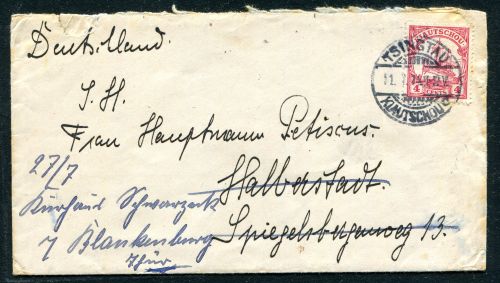 Deutschland.
KIAUTSCHOU
4 CENTS 4
TSINGTAU
KIAUTSCHOU
S. H.
Frau Hauptmann Petiscus.
Halberstadt.
Spiegelsbergenweg 13.
27/7
Kurhaus Schwarzeck
Blankenburg
Thür